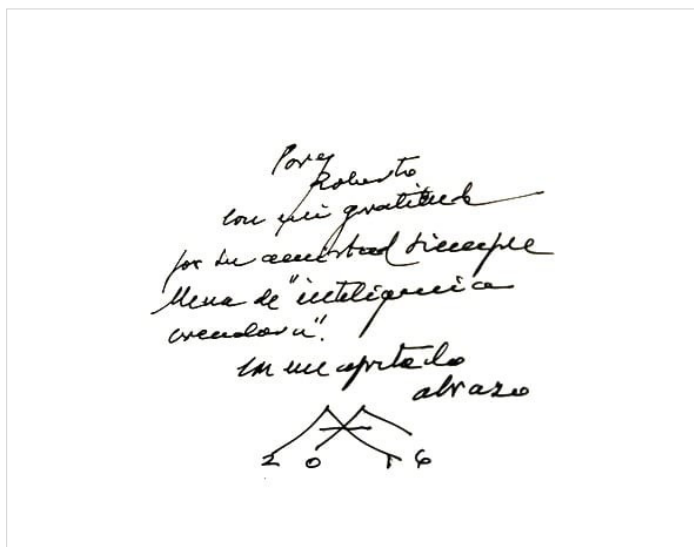 Para
Roberto
con mi gratitud
por su amistad siempre
llena de "inteligencia
creadora".
con un apretado
abrazo
2 0 1 6